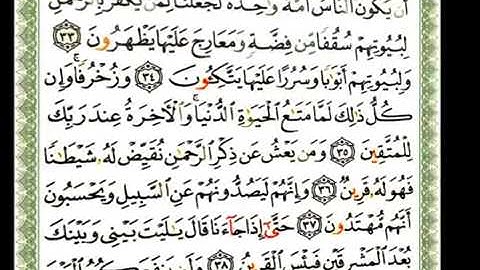 أَن يَكُونَ ٱلنَّاسُ أُمَّةً وَٰحِدَةً لَّجَعَلْنَا لِمَن يَكْفُرُ بِٱلرَّحْمَٰنِ
لِبُيُوتِهِمْ سُقُفًا مِّن فِضَّةٍ وَمَعَارِجَ عَلَيْهَا يَظْهَرُونَ ٣٣
وَلِبُيُوتِهِمْ أَبْوَٰبًا وَسُرُرًا عَلَيْهَا يَتَّكِـُٔونَ ٣٤ وَزُخْرُفًا ۚ وَإِن
كُلُّ ذَٰلِكَ لَمَّا مَتَٰعُ ٱلْحَيَوٰةِ ٱلدُّنْيَا ۚ وَٱلْـَٔاخِرَةُ عِندَ رَبِّكَ
لِلْمُتَّقِينَ ٣٥ وَمَن يَعْشُ عَن ذِكْرِ ٱلرَّحْمَٰنِ نُقَيِّضْ لَهُۥ شَيْطَٰنًا
فَهُوَ لَهُۥ قَرِينٌ ٣٦ وَإِنَّهُمْ لَيَصُدُّونَهُمْ عَنِ ٱلسَّبِيلِ وَيَحْسَبُونَ
أَنَّهُم مُّهْتَدُونَ ٣٧ حَتَّىٰٓ إِذَا جَآءَنَا قَالَ يَٰلَيْتَ بَيْنِى وَبَيْنَكَ
بُعْدَ ٱلْمَشْرِقَيْنِ فَبِئْسَ ٱلْقَرِينُ ٣٨ وَلَن يَنفَعَكُمُ ٱلْيَوْمَ